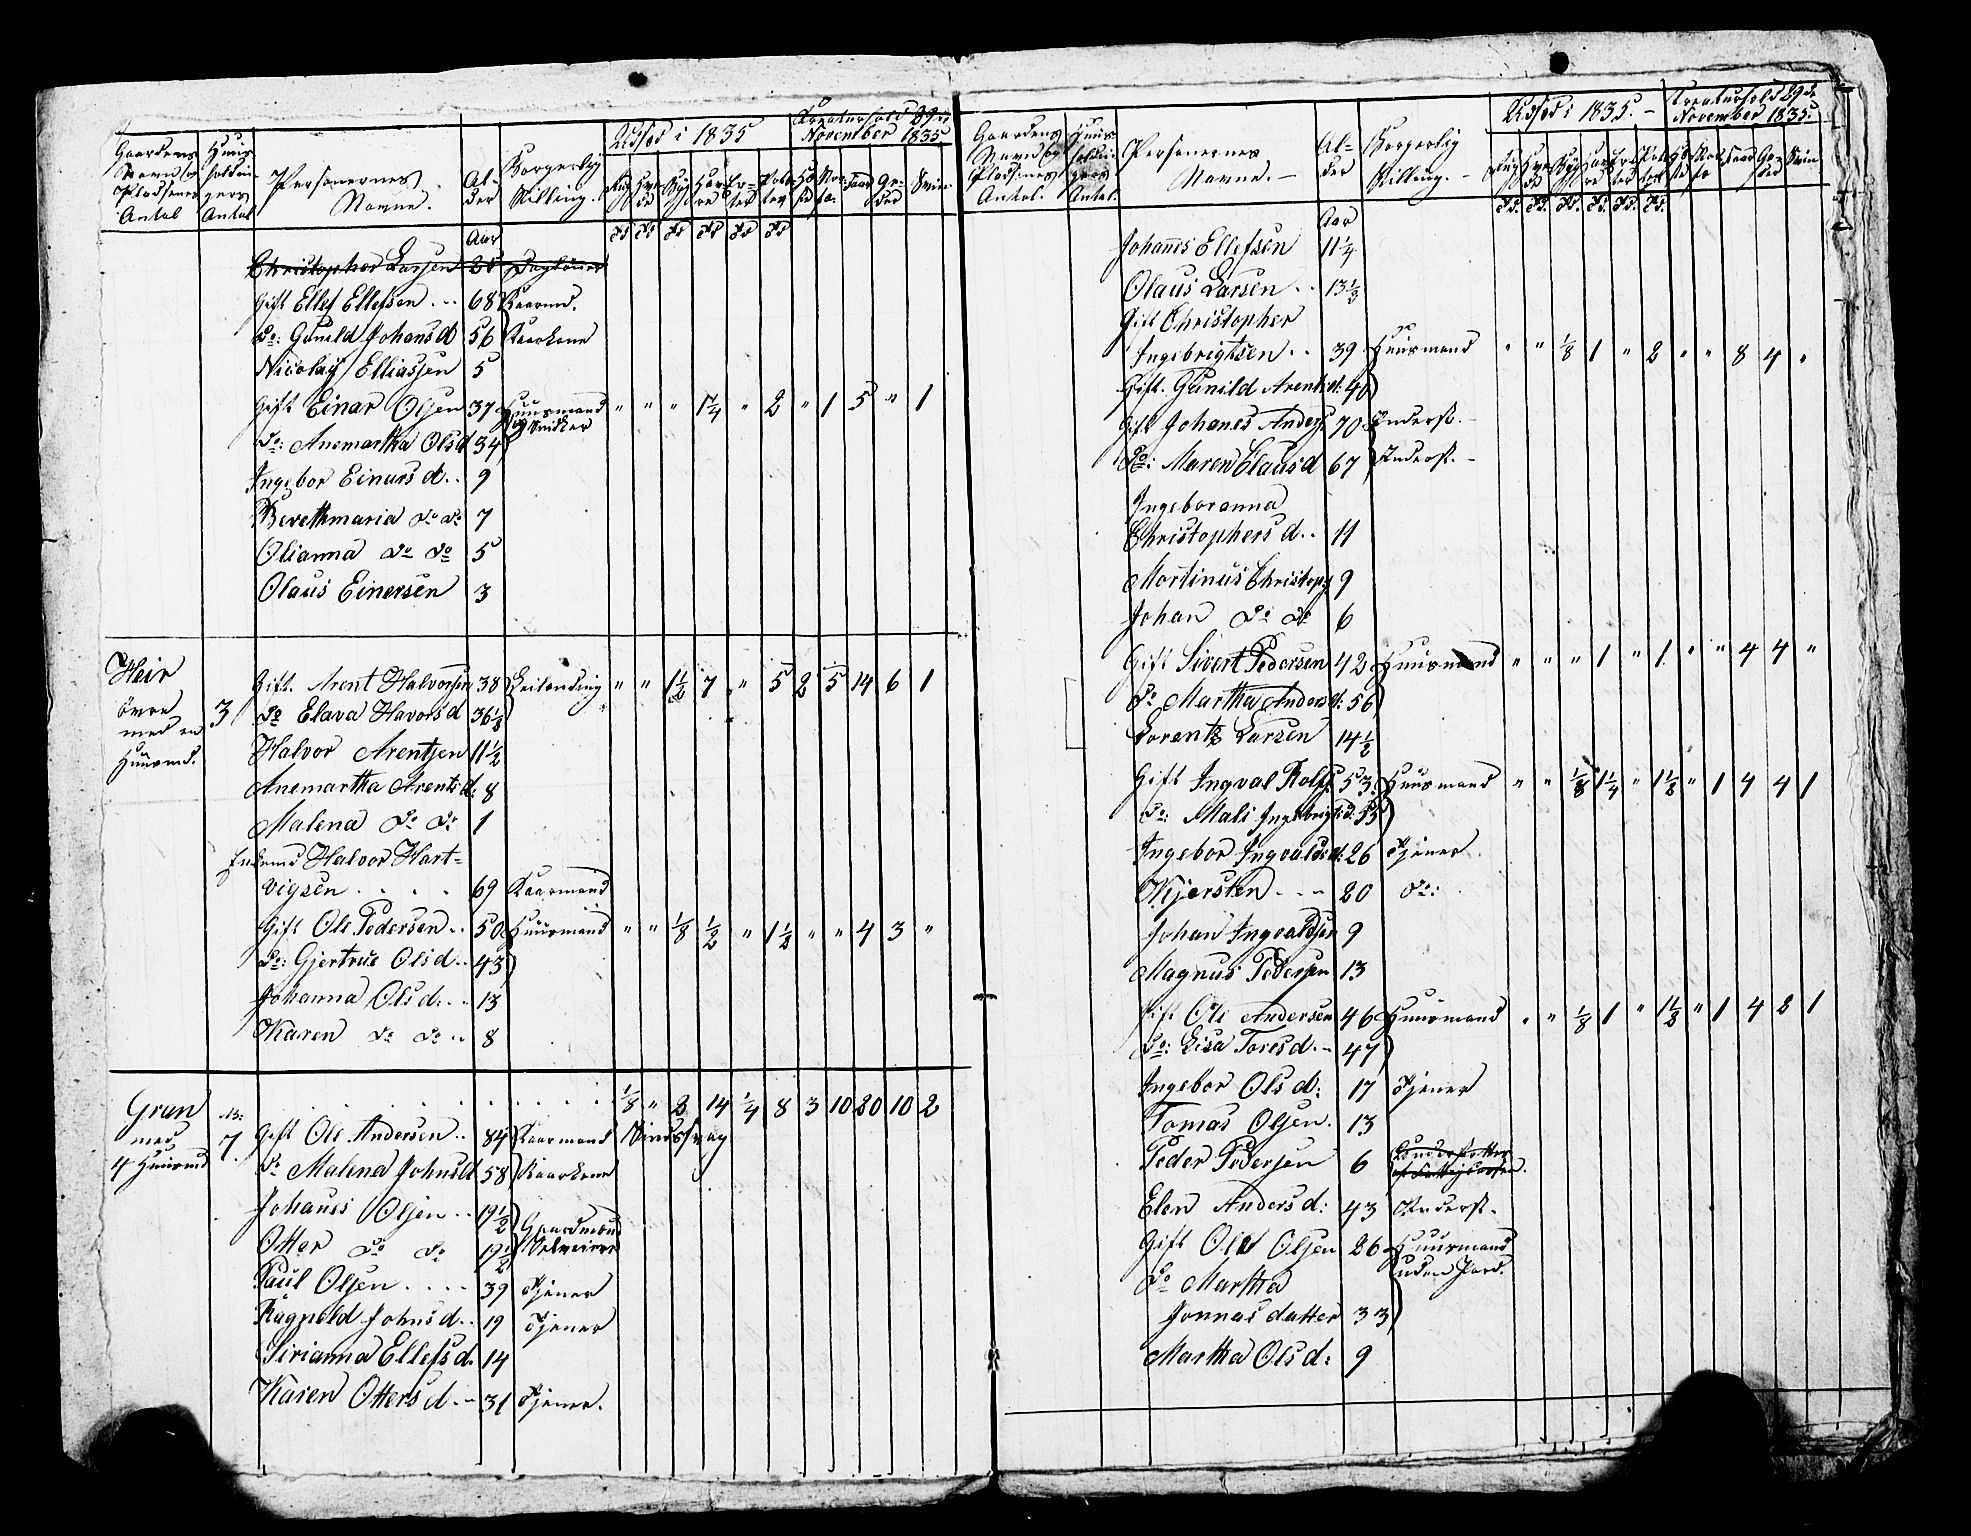 Gaardens Navn og Pladsenes Antal
Huusholdningers Antal
Personernes Navne.
Alder
Borgerlig Stilling.
Udsæd i 1835
Kreaturhold 29de November 1835
Aar
Christopher Larsen 25 Dagløner
Gift Ellef Ellefsen 68 Kaarmd.
Do: Gunild Johansd 56 Kaarkone
Nicolay Elliassen 5
Gift Einar Olsen 37 Huusmand og Snidker " " " 1¼ " 2 " 1 5 " 1
Do: Anemartha Olsd 34
Ingebor Einarsd.. 9
Berethmaria do do 7
Olianna do do 5
Olaus Einersen 3
Heir øvre med en Huusmd. 3
Gift. Arent Halvorsen 38 Leilending " " 1½ 7 " 5 2 5 14 6 1
Do Elava Havorsd 36½
Halvor Arentsen 11½
Anemartha Arentsd: 8
Malena do do 1
Enkemd Halvor Hart=
vigsen 69 Kaarmand
Gift Ole Pedersen.. 50 Huusmand " " ⅛ ½ " 1½ " " 4 3 "
Do: Gjertrue Olsd.. 43
Johanna Olsd.. 13
Karen do do.. 8
Gran med 4 Huusmd 13: 7. ⅛ " 2 14 ¼ 8 3 10 20 10 2
Gift Ole Andersen.. 84 Kaarmand
Do Malena Johnsd 58 Kaarkone
Johanes Olsen.. 19½
Otter do do 19½
Paul Olsen.... 39 Tjener
Ragneld Johnsd.. 19 Tjener
Sirianna Ellefsd. 14
Karen Ottersd.. 31 Tjener.
Gaardens Navn og Pladsenes Antal.
Huusholdningers Antal.
Personernes Navne.
Alder
Borgerlig Stilling.
Udsæd i 1835.
Kreaturhold 29de November 1835.
Aar
Johanes Ellefsen 11¼
Olaus Larsen.. 13½
Gift Christopher
Ingebrightsen.. 39 Huusmand " " ⅛ 1 " 2 " " 8 4 "
Gift. Gunild Arentsd: 40
Gift Johanes Anders 70 Inderst.
Do: Maren Clausd 67 Inderst.
Ingeboranna
Christophersd.. 11
Mortinus Christops 9
Johan do do 6
Gift Sivert Pedersen 42 Huusmand " " " 1 " 1 " " 4 4 "
Do Martha Andersd: 56
Lorentz Larsen 14½
Gift Ingval Rolfs. 53 Huusmand " " ⅛ 1¼ " 1½ " 1 4 4 1
Do: Mali Ingebrigtsd: 55
Ingebor Ingvaldsd: 26 Tjener
Kjersten... 20 do:
Johan Ingvaldsen 9
Magnus Pedersen 13
Gift Ole Andersen 46 Huusmand " " ⅛ 1 " 1½ " 1 4 2 1
Do: Lisa Toresd.. 47
Ingebor Olsd: 17 Tjener
Tomas Olsen. 13
Peder Pedersen 6
Elen Andersd: 43 Inderst.
Gift Ole Olsen 26 Huusmand uden Jord.
Do Martha
Jonnasdatter 33
Martha Olsd: 9